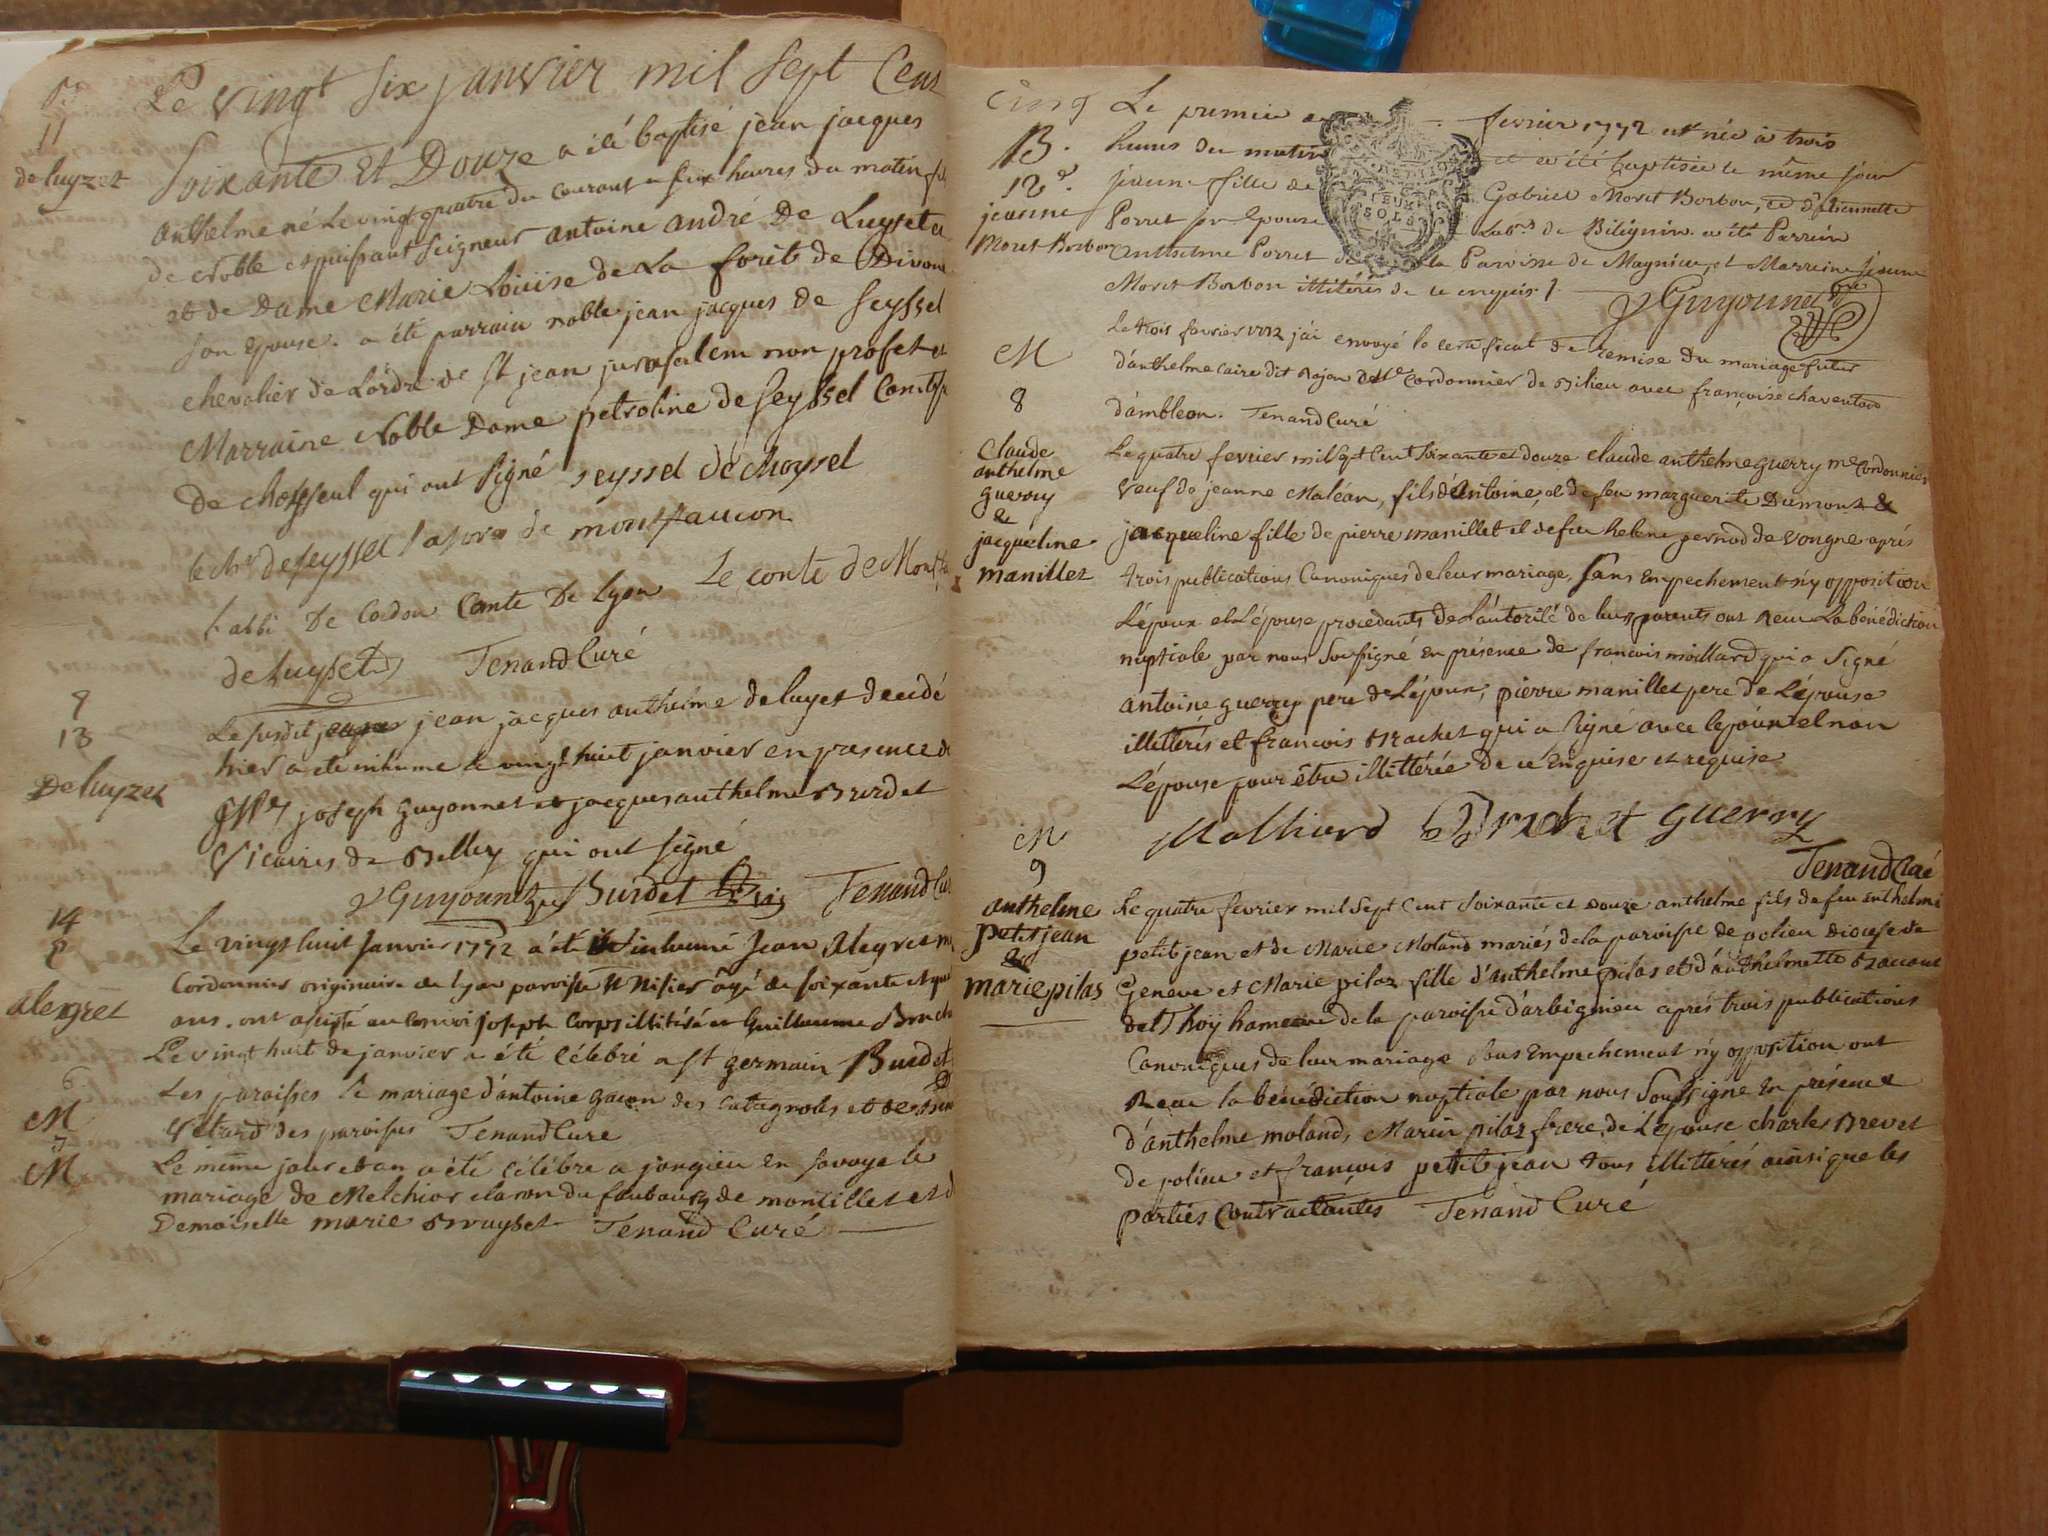 11
de luyzet
Le vingt six janvier mil sept Cent
Soixante Et Douze a été baptisé jean jacques
anthelme né Le vingt quatre du courant a six heures du matin fils
de Noble et puissant Seigneur antoine andré De Luyset
et de Dame Marie Louise de La forêts de Divone
son epouse. a été parrain noble jean jacques de Seyssel
chevalier de Lordre de St jean jurusalem non profet et
Marraine Noble Dame petroline de Seyssel Comtesse
De choiseul qui ont signé seyssel de choysel
le chr de seyssel de montfaucon
l'abbé De Cordon Comte De Lyon Le conte de Montf
de Luyset Tenand Curé
13
De luyzet
Le susdit jean jacques anthelme de luyet decedé
hier a ete inhumé le vingt huit janvier en presence de
Mrs joseph Guyonnet et jacques anthelme Burdet
Vicaires de Belley qui ont signé
Guyonnet Burdet Tenand Curé
14
alegret
Le vingt huit Janvier 1772 a été inhumé Jean Alegret
Cordonnier originaire de lyon paroisse St Nisier âgé de soixante et
ans. ont assisté au convoi joseph Corps illitéré et Guillaume
Burdet
6
M
Le vingt huit de janvier a été célébré a St germain
Les paroisses le mariage d'antoine gacon des Catagnoles et de
Vetard des paroisses Tenand Cure
7
M
Le même jour et an a été célébre a jongieu en Savoye le
mariage de Melchior claron du faubourg de montillet et d
Demoiselle marie Bruyset Tenand Curé
cinq
B.
12e.
jeanne
Moret Borbon
Le premier fevrier 1772 est née à trois
heures du matin et a été baptisée le même jour
jeanne fille de Gabriel Moret Borbon, et d'Etiennette
Porret son Epouse Labrs de Bilignin. a été Parrein
Anthelme Porret de la Paroisse de Magnieu, et Marreine Jeanne
Moret Borbon illitérés de ce enquis
Guyonnet
M
8
Le trois fevrier 1772 j'ai envoyé le certificat de remise du mariage futur
d'anthelme caire dit Rojon Me Cordonnier de Billieu avec françoise chaventon
d'ambleon. Tenand Curé
Claude
anthelme
guerry
&
jacqueline
manillet
Le quatre fevrier mil sept Cent Soixante et douze claude anthelme guerry me Cordonnier
Veuf de jeanne Maléan, fils d'Antoine, et de feu marguerite Dumont &
jacqueline fille de pierre manillet et de feu helene pernod de Vongne après
trois publications Canoniques de leur mariage, Sans Empechement n'y opposition
L'époux et L'épouse procedants de L'autorité de leurs parents ont Receu La bénédiction
nuptiale par nous Soussigné En présence de francois molliard qui a Signé
antoine guerry pere de L'époux, pierre manillet pere de L'épouse
illittérés et francois Brachet qui a signé avec l'epoux et non
L'épouse pour être illittérée de ce Enquise et requise
Molliard Brachet guerry
Tenand Curé
M
9
anthelme
petitjean
&
marie pilas
Le quatre fevrier mil Sept Cent Soixante et Douze anthelme fils de feu anthelme
petit jean et de Marie Moland mariés de la paroisse de polieu diocese de
Geneve et Marie pilaz fille d'anthelme pilas et d'anthelmette
de Thoÿ hameau de la paroisse d'arbignieu après trois publications
Canoniques de leur mariage Sans Empechement n'y opposition ont
Receu la bénédiction nuptiale par nous Soussigné En présence
d'anthelme moland, Marin pilaz frere de L'epouse charles Brevet
de polieu et francois petit jean tous illittérés ainsi que les
parties Contractantes Tenand Curé